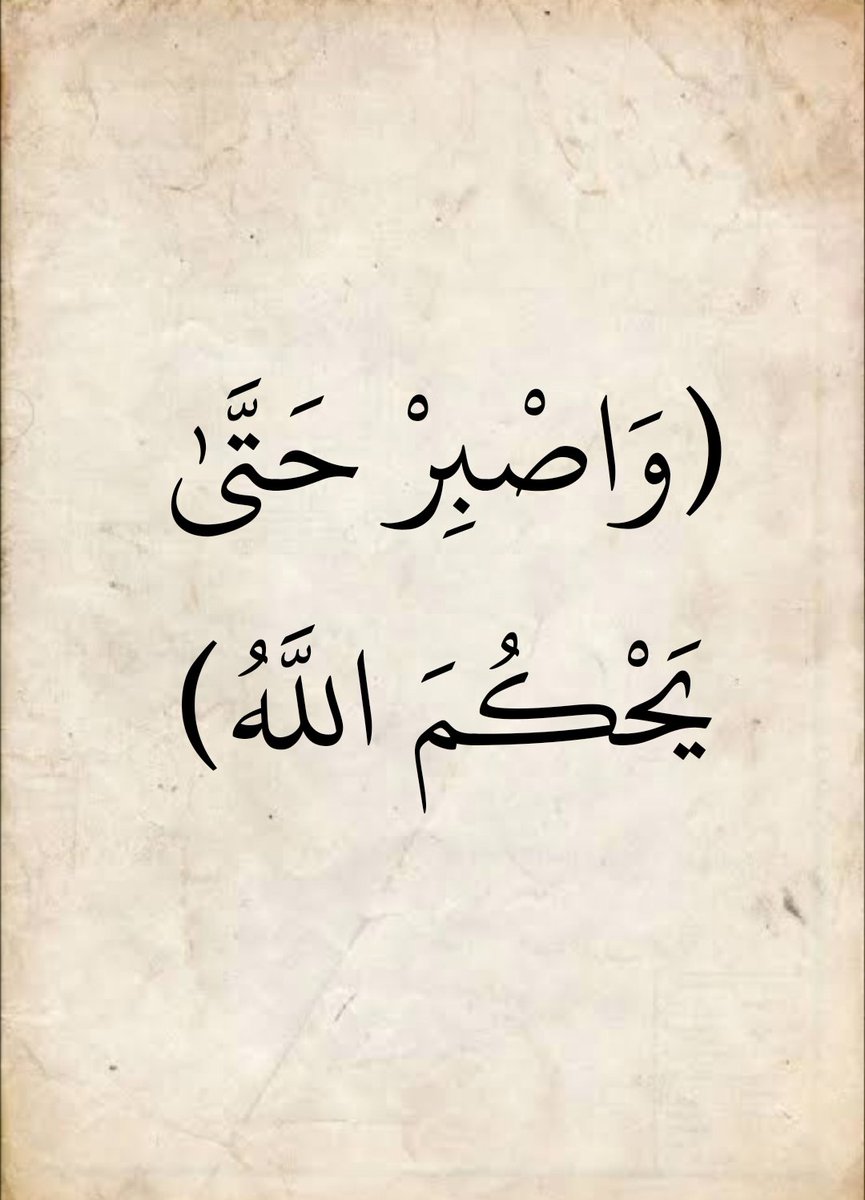 (وَاصْبِرْ حَتَّىٰ
يَحْكُمَ اللَّهُ)